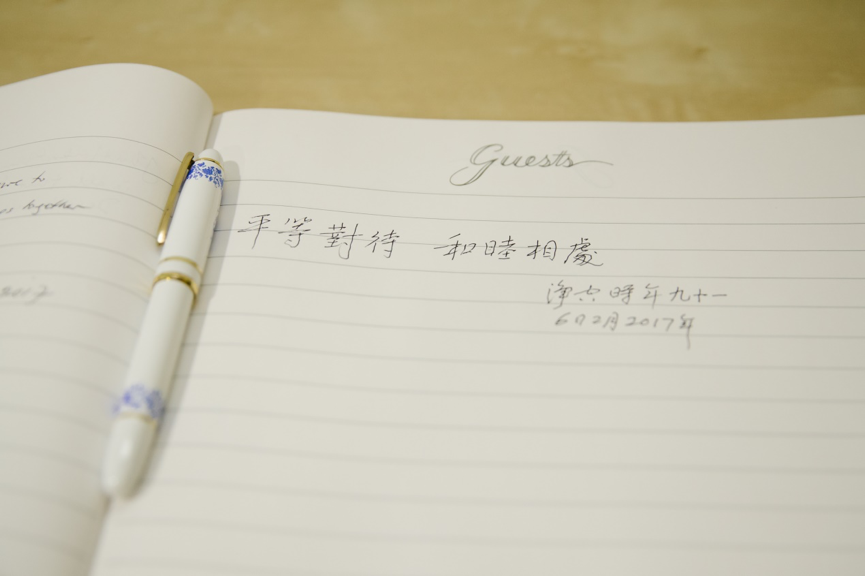 together
Guests
平等對待 和睦相處
淨六時年九十一
6日2月2017年